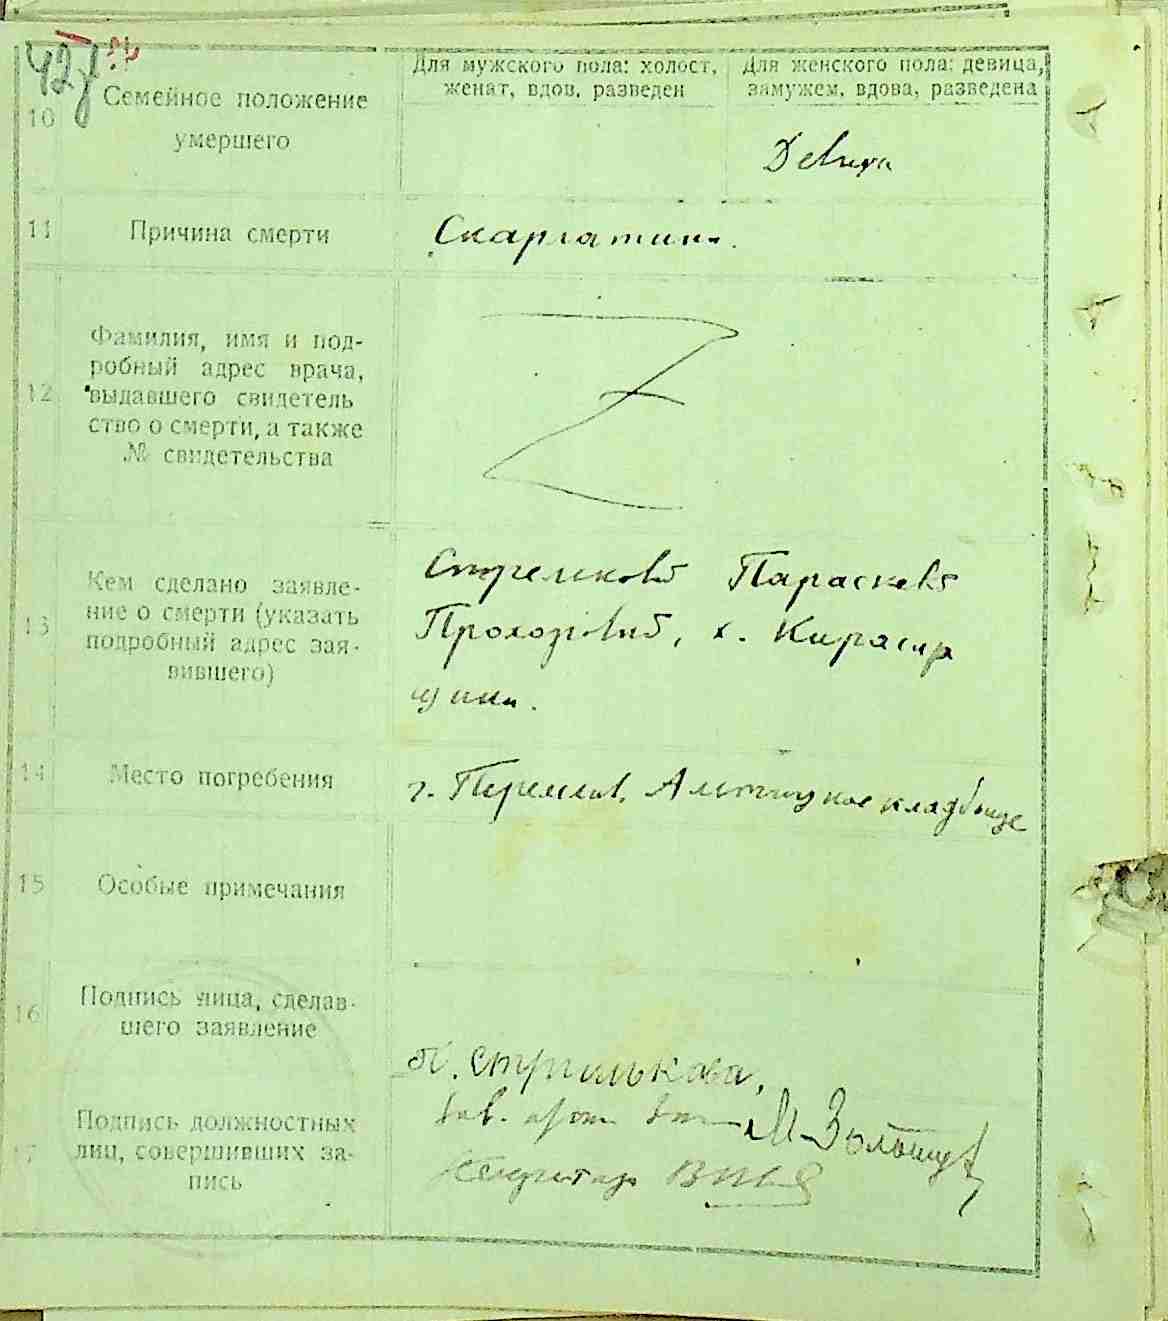 42
10
Семейное положение
умершего
Для мужского пола: холост,
женат, вдов, разведен
Для женского пола: девица,
замужем, вдова, разведена
Девица
11
Причина смерти
Скарлатина.
12
Фамилия, имя и под-
робный адрес врача,
выдавшего свидетель
ство о смерти, а также
№ свидетельства
Z
13
Кем сделано заявле-
ние о смерти (указать
подробный адрес зая-
вившего)
Стрелковой Параскевой
Прохоровной, х.
14
Место погребения
г. кладбище
15
Особые примечания
16
Подпись лица, сделав-
шего заявление
П. Стрилькова,
17
Подпись должностных
лиц, совершивших за-
пись
Зав.
Секретарь